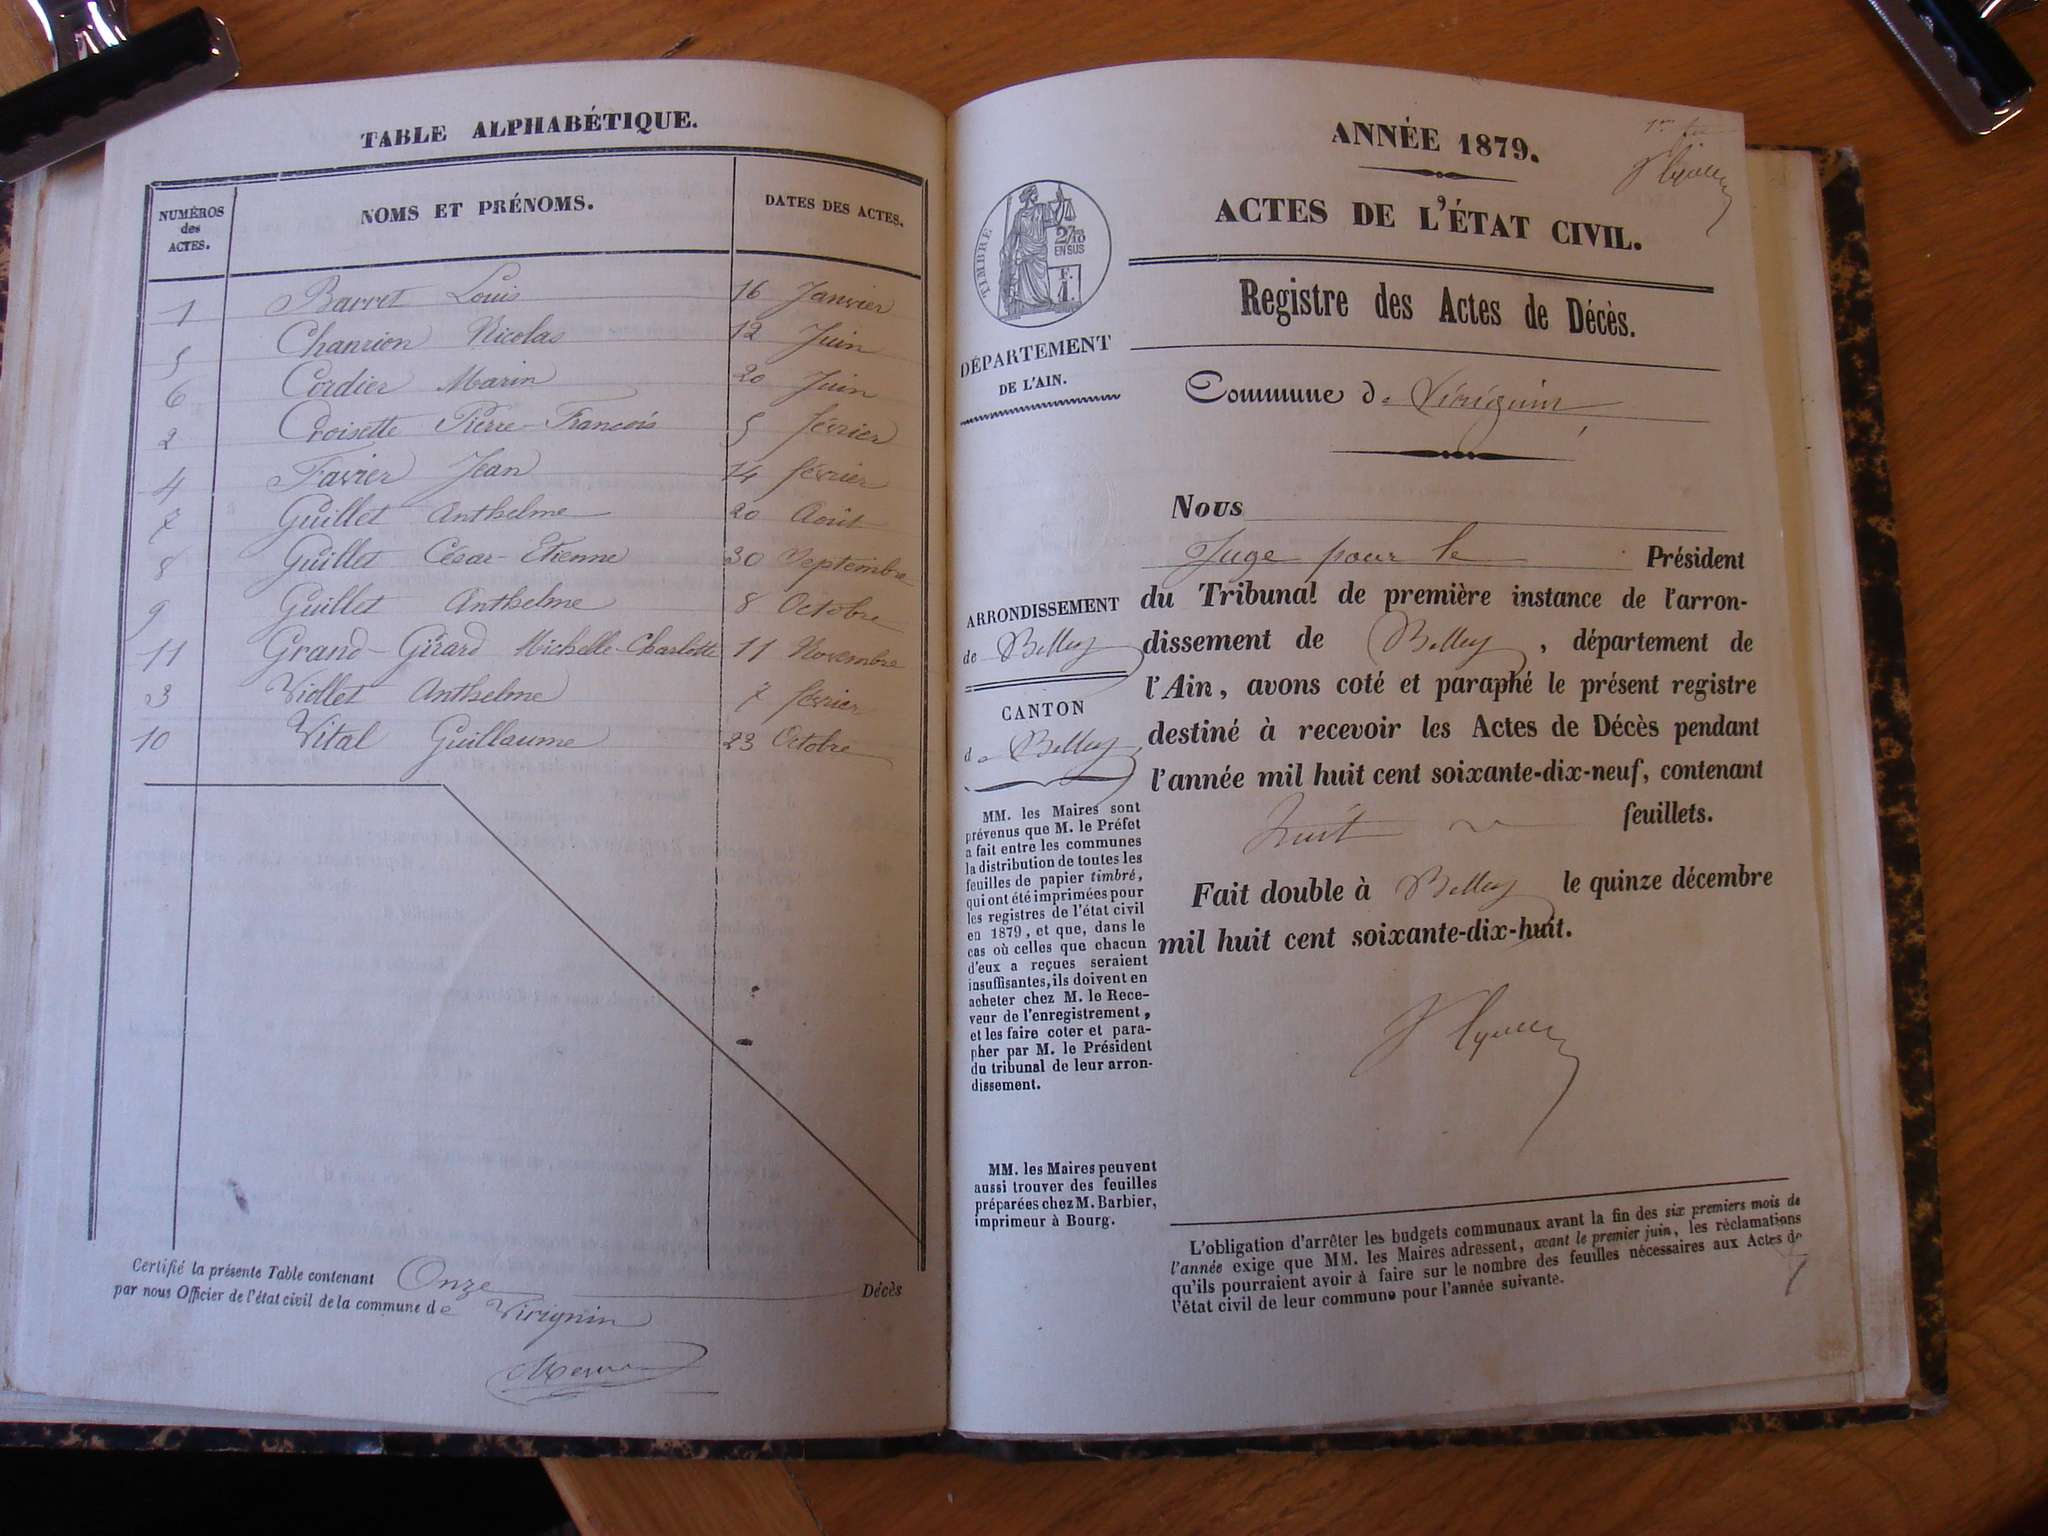 TABLE ALPHABÉTIQUE.
NUMÉROS des ACTES. NOMS ET PRÉNOMS. DATES DES ACTES.
1 Barret Louis 16 Janvier
5 Chanrion Nicolas 12 Juin
6 Cordier Marin 20 Juin
2 Croisette Pierre-Francois 5 février
4 Favier Jean 14 février
7 Guillet Anthelme 20 Août
8 Guillet César-Etienne 30 Septembre
9 Guillet Anthelme 8 Octobre
11 Grand-Girard Michelle-Charlotte 11 Novembre
3 Viollet Anthelme 7 février
10 Vital Guillaume 23 Octobre
Certifié la présente Table contenant Onze Décès
par nous Officier de l'état civil de la commune de Virignin
ANNÉE 1879.
ACTES DE L'ÉTAT CIVIL.
TIMBRE
2/10
EN SUS
F.
1.
Registre des Actes de Décès.
DÉPARTEMENT
DE L'AIN.
Commune de Virignin
Nous
Juge pour le Président
du Tribunal de première instance de l'arron-
dissement de Belley, département de
l'Ain, avons coté et paraphé le présent registre
destiné à recevoir les Actes de Décès pendant
l'année mil huit cent soixante-dix-neuf, contenant
huit feuillets.
Fait double à Belley le quinze décembre
mil huit cent soixante-dix-huit.
ARRONDISSEMENT
de Belley
CANTON
de Belley
MM. les Maires sont
prévenus que M. le Préfet
a fait entre les communes
la distribution de toutes les
feuilles de papier timbré,
qui ont été imprimées pour
les registres de l'état civil
en 1879, et que, dans le
cas où celles que chacun
d'eux a reçues seraient
insuffisantes, ils doivent en
acheter chez M. le Rece-
veur de l'enregistrement,
et les faire coter et para-
pher par M. le Président
du tribunal de leur arron-
dissement.
MM. les Maires peuvent
aussi trouver des feuilles
préparées chez M. Barbier,
imprimeur à Bourg.
L'obligation d'arrêter les budgets communaux avant la fin des six premiers mois de
l'année exige que MM. les Maires adressent, avant le premier juin, les réclamations
qu'ils pourraient avoir à faire sur le nombre des feuilles nécessaires aux Actes de
l'état civil de leur commune pour l'année suivante.